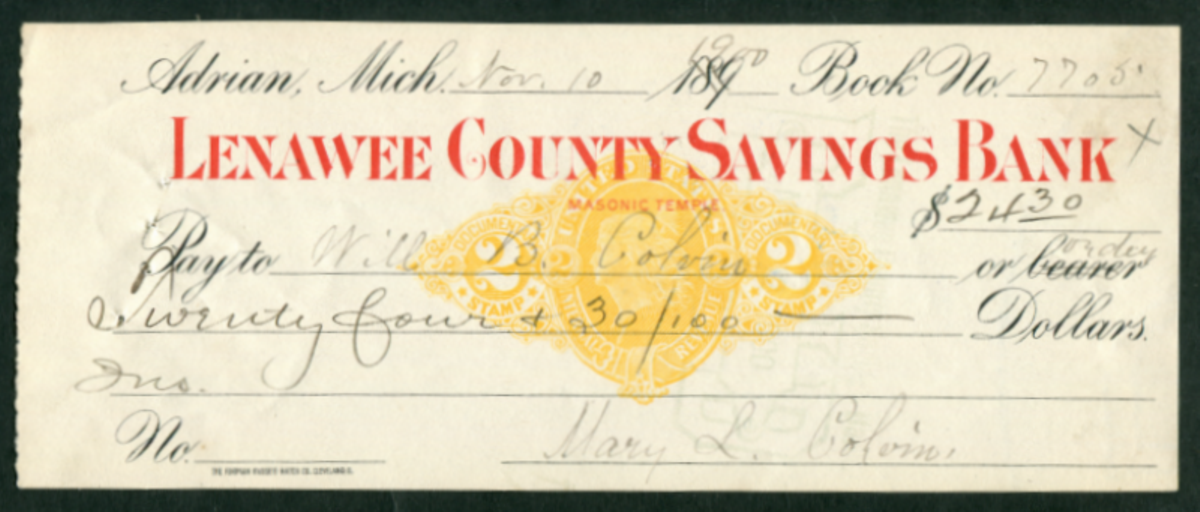 Adrian, Mich. Nov. 10 1900 Book No. 7705
LENAWEE COUNTY SAVINGS BANK X
MASONIC TEMPLE
$24 30
UNITED STATES
DOCUMENTARY DOCUMENTARY
2 2
STAMP STAMP
INTERNAL REVENUE
Pay to Will B. Colvin or bearer order
Twenty four & 30/100 Dollars.
Ino.
No.
Mary L. Colvin.